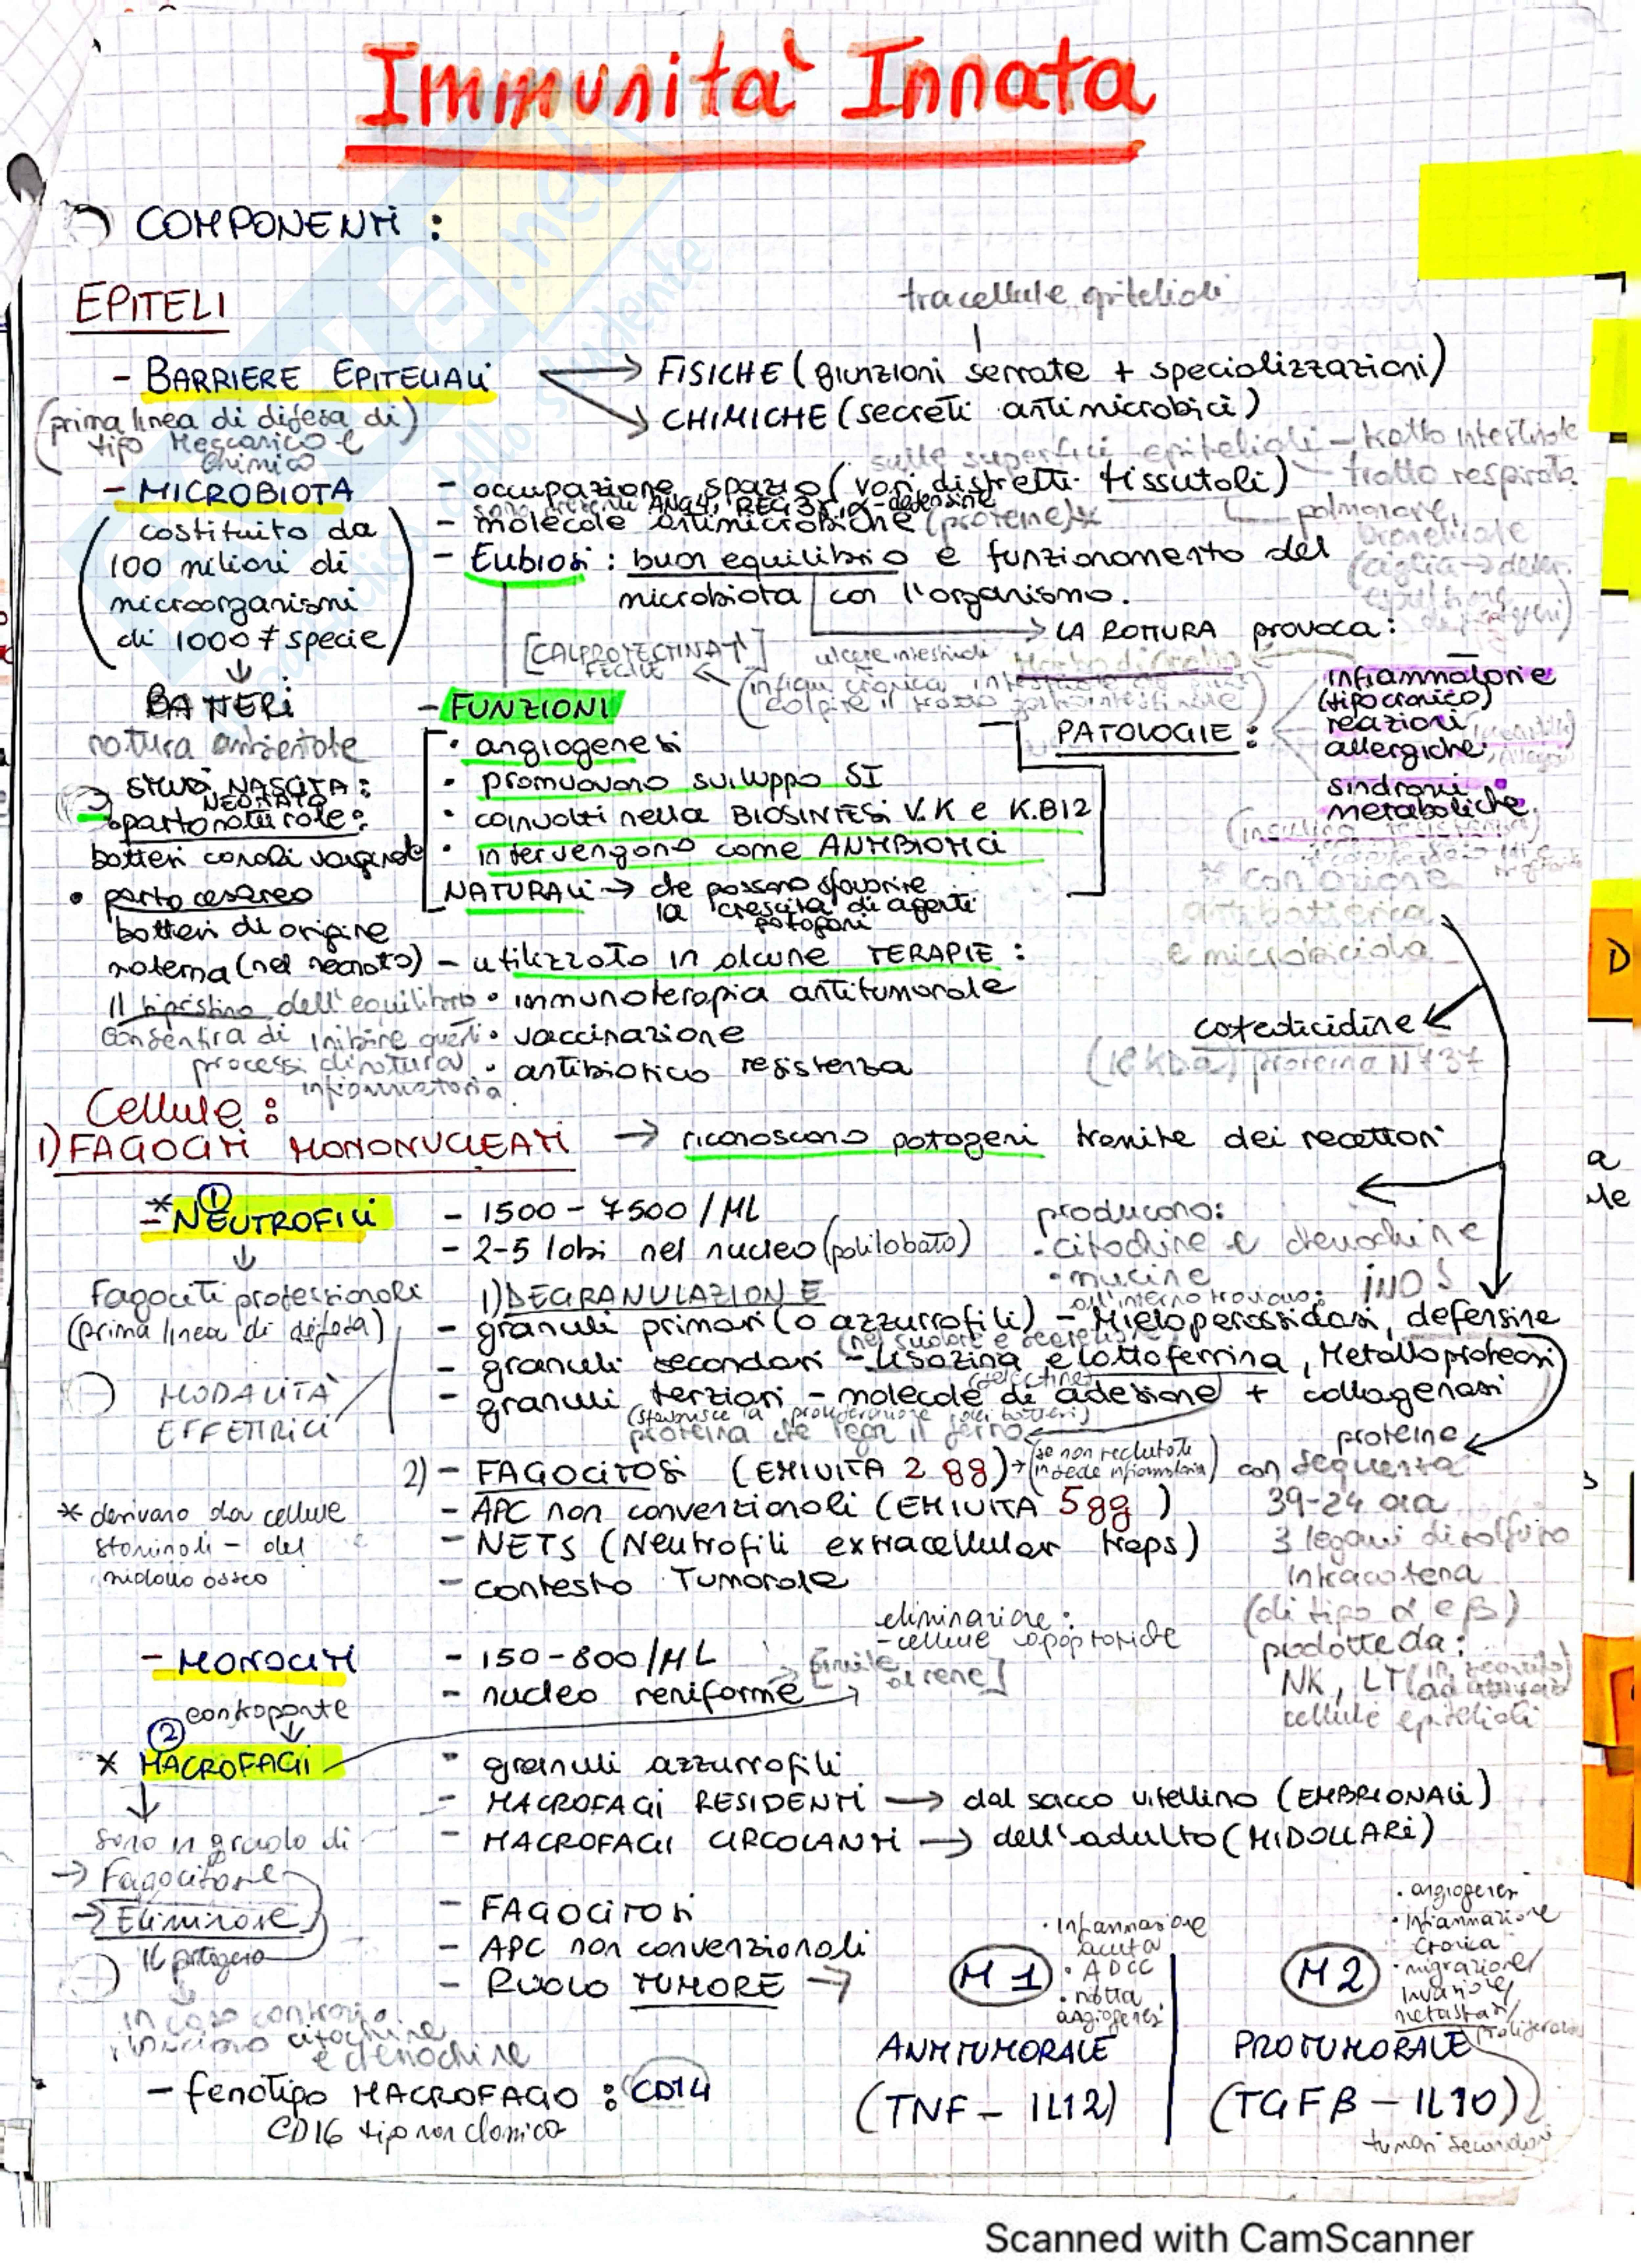 Immunità Innata
COMPONENTI :
EPITELI
tra cellule epiteliali
- BARRIERE EPITELIALI → FISICHE (giunzioni serrate + specializzazioni)
→ CHIMICHE (secreti antimicrobici)
(prima linea di difesa di
tipo meccanico e
chimico)
sulle superfici epiteliali - tratto intestinale
- tratto respirato.
- MICROBIOTA
- occupazione spazio (vari distretti tissutali)
sono presenti ANG4, REG3γ, α-defensine
- molecole antimicrobiche (proteine)*
polmonare,
bronchiale
- Eubiosi : buon equilibrio e funzionamento del
microbiota con l'organismo.
(costituito da
100 milioni di
microorganismi
di 1000 ≠ specie)
→ LA ROTTURA provoca :
[CALPROTECTINA↑]
FECALE
ulcere intestinali
PATOLOGIE :
infiammatorie
(tipo cronico)
reazioni
allergiche
sindromi
metaboliche
↓
BATTERI
natura ambientale
STUDI NASCITA :
NEONATO
parto naturale :
batteri canali vaginale
• parto cesareo
batteri di origine
materna (nel neonato)
Il ripristino dell'equilibrio
consentira di inibire questi
processi di natura
infiammatoria.
- FUNZIONI
• angiogenesi
• promuovono sviluppo SI
• coinvolti nella BIOSINTESI V.K e K.B12
• intervengono come ANTIBIOTICI
NATURALI → che possono sfavorire
la crescita di agenti
patogeni
- utilizzato in alcune TERAPIE :
• immunoterapia antitumorale
• vaccinazione
• antibiotico resistenza
* con azione
antibatterica
e microbicida
catelicidine
(18 KDa) proteina N 737
Cellule :
1) FAGOCITI MONONUCLEATI → riconoscono patogeni tramite dei recettori
* ①
- NEUTROFILI
↓
Fagociti professionali
(prima linea di difesa)
MODALITÀ
EFFETTRICI
- 1500 - 7500 / ML
- 2-5 lobi nel nucleo (polilobato)
producono:
• citochine e chemochine
• mucine
iNOS
all'interno troviamo:
1) DEGRANULAZIONE
- granuli primari (o azzurrofili) - Mieloperossidasi, defensine
- granuli secondari - lisozima e lattoferrina, Metalloproteasi
(selectine)
- granuli terziari - molecole di adesione + collagenasi
proteina che lega il ferro
2) - FAGOCITOSI (EMIVITA 2 gg) → (se non reclutate
in sede infiammatoria)
- APC non convenzionali (EMIVITA 5gg)
- NETS (Neutrofili extracellular traps)
- contesto Tumorale
* derivano da cellule
staminali - del
midollo osseo
proteine
con sequenza
39-24 aa
3 legami disolfuro
intracatena
(di tipo α e β)
prodotte da :
NK, LT
cellule epiteliali
- MONOCITI
- 150-800/ML
- nucleo reniforme → [simile
al rene]
eliminazione :
- cellule apoptotiche
controparte
↓
②
* MACROFAGI
↓
sono in grado di
→ Fagocitare
→ Eliminare
il patogeno
in caso contrario
citochine
e chemochine
- granuli azzurrofili
- MACROFAGI RESIDENTI → dal sacco vitellino (EMBRIONALI)
- MACROFAGI CIRCOLANTI → dell'adulto (MIDOLLARI)
- FAGOCITOSI
- APC non convenzionali
- RUOLO TUMORE →
M1
• Infiammazione
acuta
• ADCC
• ridotta
angiogenesi
ANTITUMORALE
(TNF - IL12)
M2
• angiogenesi
• infiammazione
cronica
• migrazione/
invasione/
metastasi/
proliferazione
PROTUMORALE
(TGFβ - IL10)
tumori secondari
- fenotipo MACROFAGO : CD14
CD16 tipo non classico
D
Scanned with CamScanner